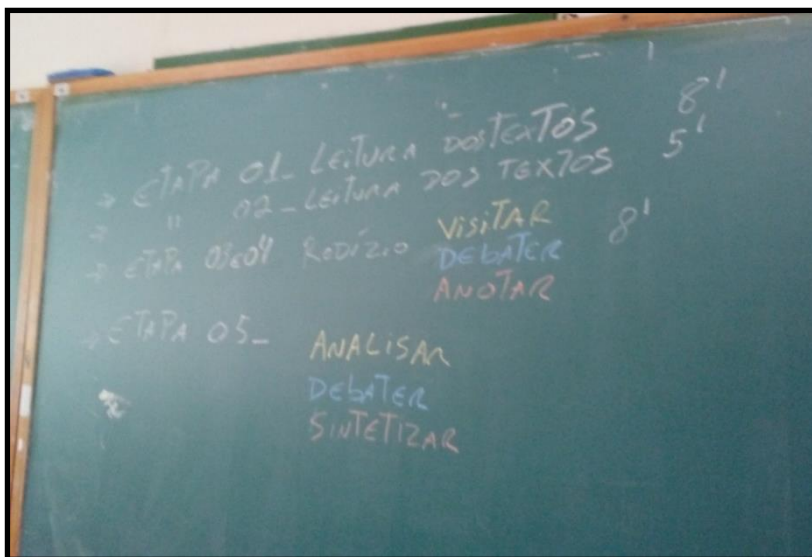 → ETAPA 01_ LEITURA DOS TEXTOS 8'
→ " 02_ LEITURA DOS TEXTOS 5'
→ ETAPA 03 e 04 RODÍZIO VISITAR 8'
DEBATER
ANOTAR
→ ETAPA 05_ ANALISAR
DEBATER
SINTETIZAR